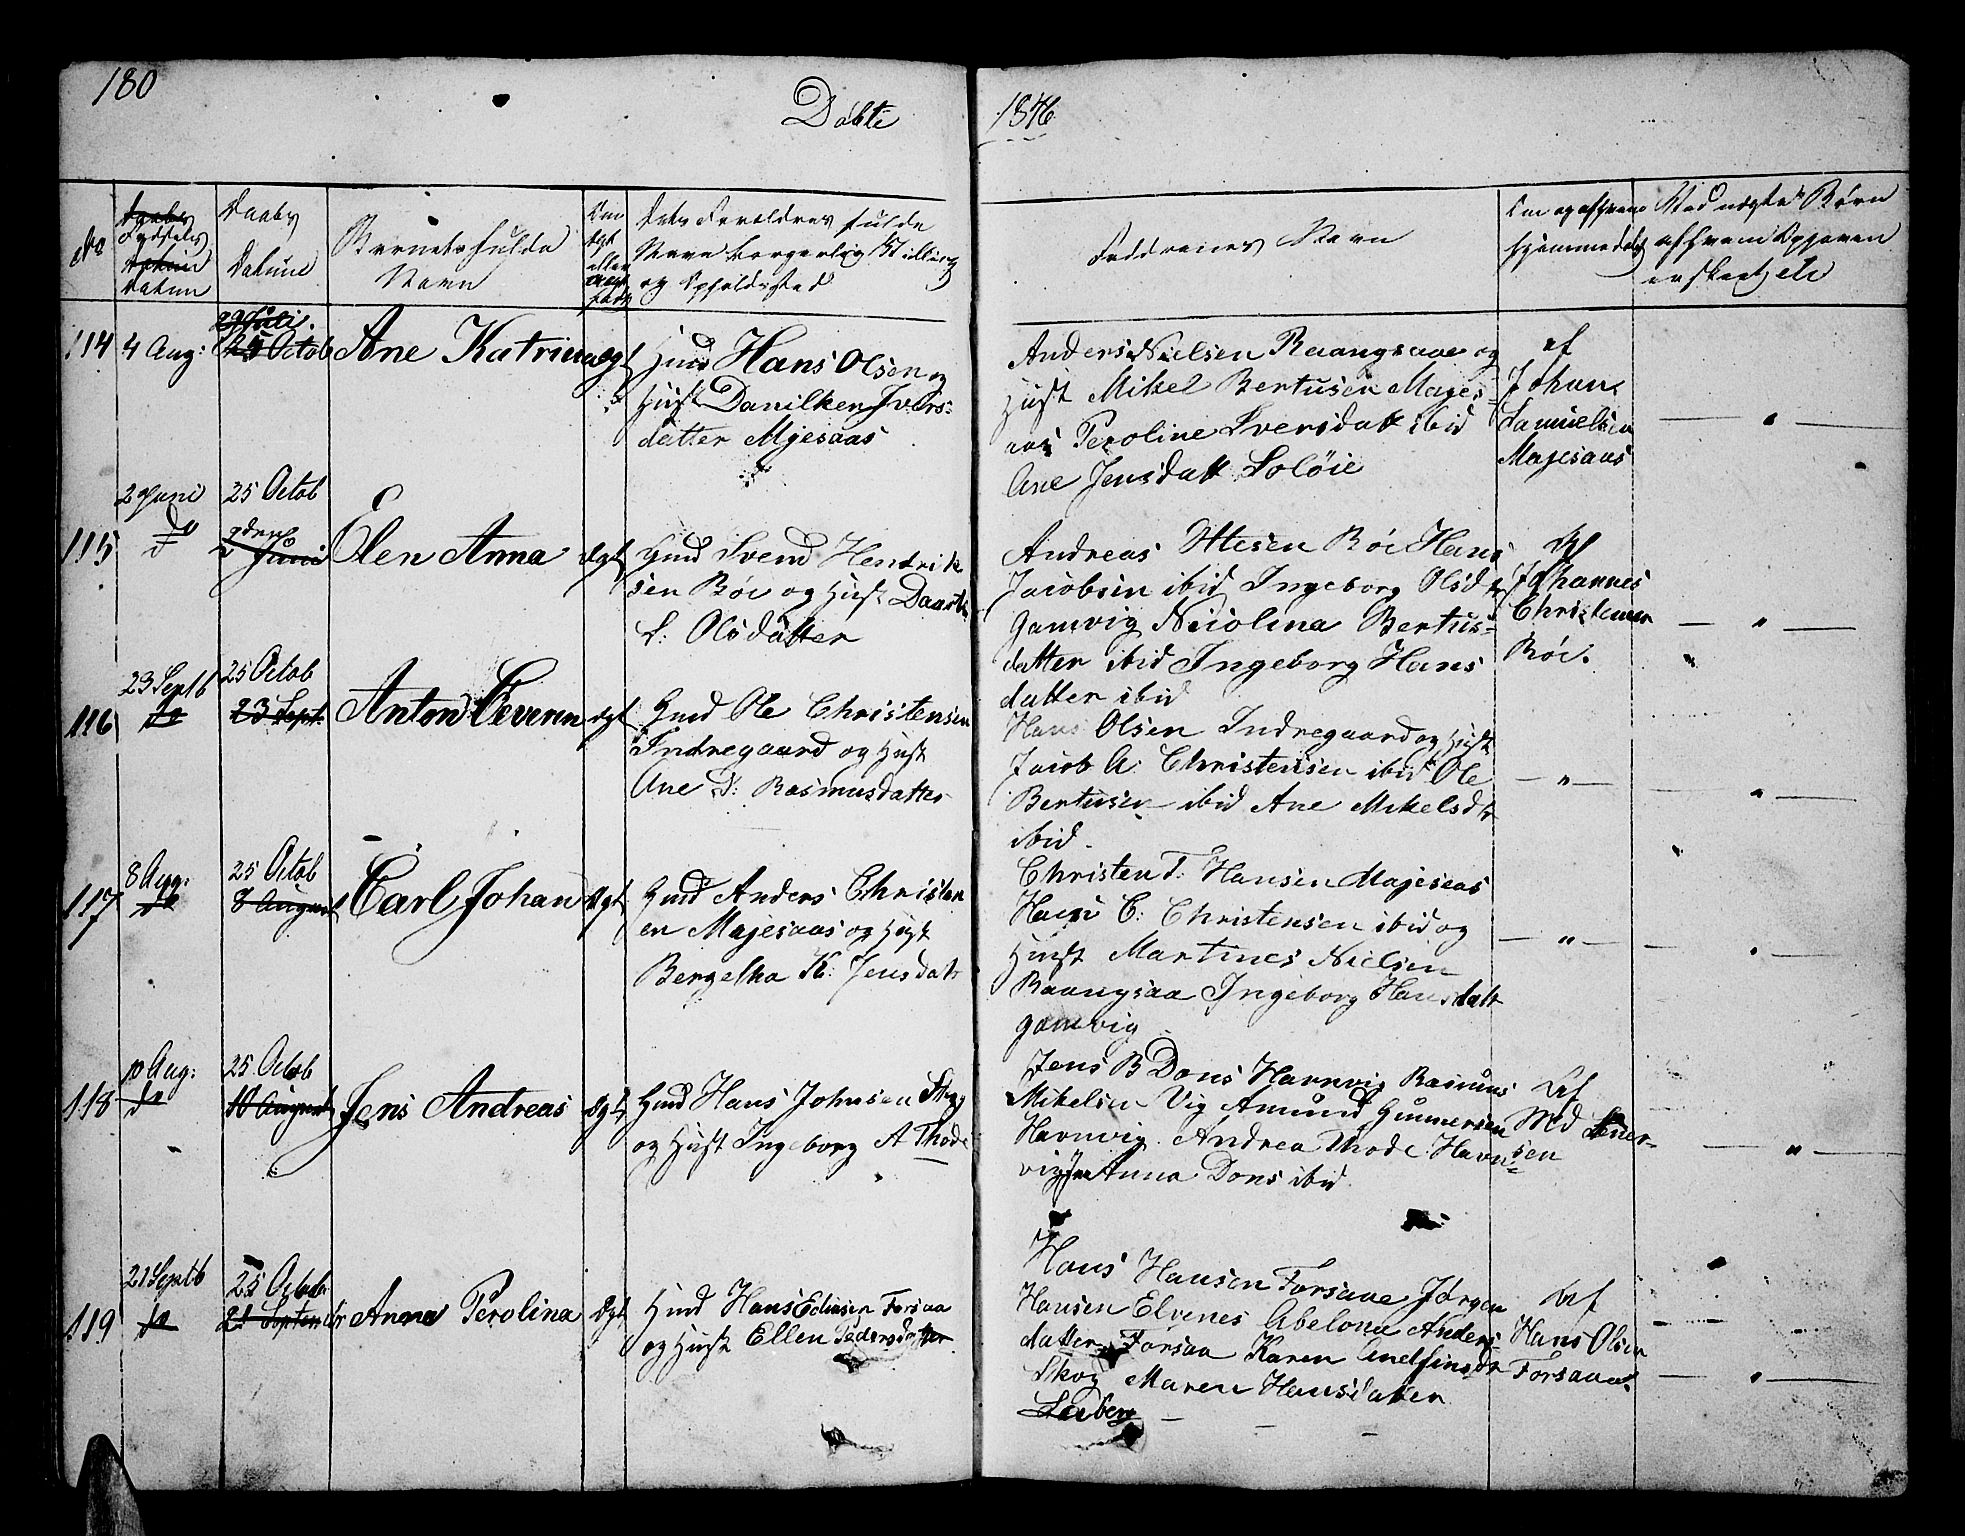 180
Døbte
1846
No
Fødsels
Datum
Daabs
Datum
Barnets fulde
Navn
Om
ægt
eller
uægt
født
Dets Foreldres fulde
Navn borgerlig Stilling
og Opholdssted
Faddernes Navn
Om og af hvem
hjemmedøbt
Med uægte Børn
af hvem Opgaven
er skeet etc
114
4 Aug:
29 Juli.
25 Octob
Ane Katrina
ægt
Hmd Hans Olsen og
Hust Danilken Ivers-
datter Majesaas
Anders Nielsen Raangsaae og
Hust Mikel Bertusen Majes-
aas Peroline Iversdatt ibid
Ane Jensdatt Loløie
af
Johan
Samuelsen
Majesaas
— " —
115
2 Juni
do
25 Octob
2 Juni
Elen Anna
ægt
Hmd Svend Hendrik
sen Røe og Hust Daart
L: Olsdatter
Andreas Ottesen Røe Hans
Jacobsen ibid Ingeborg Olsdtr
Gamvig Nicolina Bertus-
datter ibid Ingeborg Hans
datter ibid
Af
Johannes
Christensen
Røe.
— " —
116
23 Septb
do
25 Octob
23 Sept.
Anton Severin
ægt
Hmd Ole Christensen
Indregaard og Hust
Ane D: Rasmusdatter
Hans Olsen Indregaard og Hust
Jacob A: Christensen ibid Ole
Bertusen ibid Ane Mikelsdtr
ibid.
— " —
— " —
117
8 Aug:
do
25 Octob
8 August
Carl Johan
ægt
Hmd Anders Christen
en Majesaas og Hust
Bergetha K: Jensdatr
Christen T: Hansen Majesaas
Hans C: Christensen ibid og
Hust Martines Nielsen
Raangsaa Ingeborg Hansdatt
Gamvig
— " —
— " —
118
10 Aug:
do
25 Octob
10 August
Jens Andreas
ægt
Hmd Hans Johnsen
og Hust Ingeborg A Thode
Jens B Dons Havnvig Rasmus
Mikelsen Vig Amund Gunnersen
Havnvig Andrea Thode Havn-
vig Anna Dons ibid
Af
Md
sen
— " —
119
21 Septb
do
25 Octob
21 September
Anna Perolina
ægt
Hmd Hans Edinsen Forsaa
og Hust Ellen Pedersdatter
Hans Hansen Forsaae Jørgen
Hansen Elvenes Abelona Anders-
datter Forsaa Karen Endfinsdr
Skog Maren Hansdatter
Leeberg
Af
Hans Olsen
Forsaae
— " —